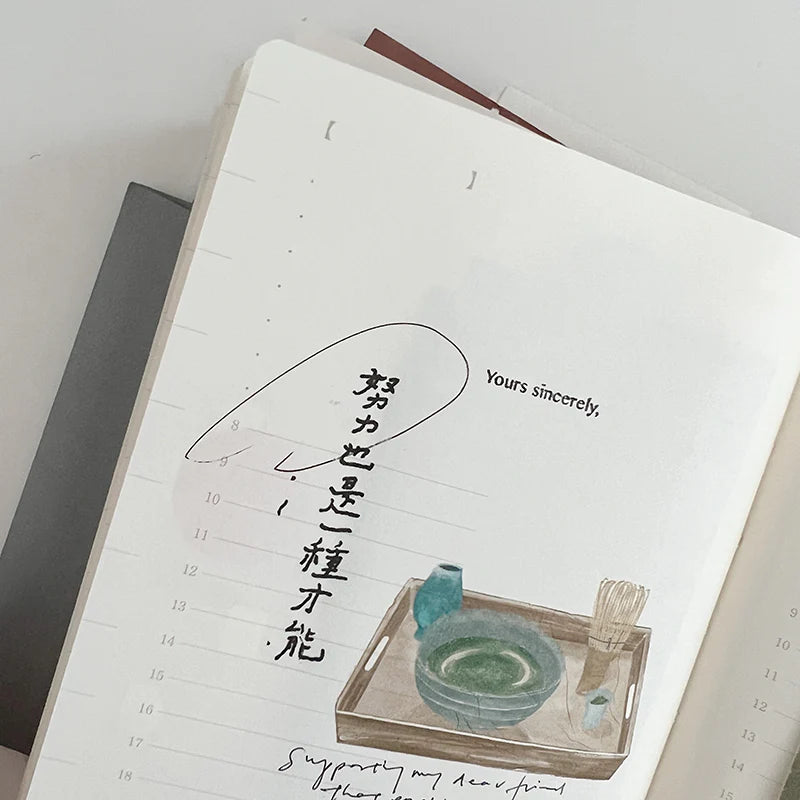 【
】
Yours sincerely,
努力也是一種才能
8
9
10
11
12
13
14
15
16
17
18
Supporting my dear friend
9
10
11
12
13
14
15